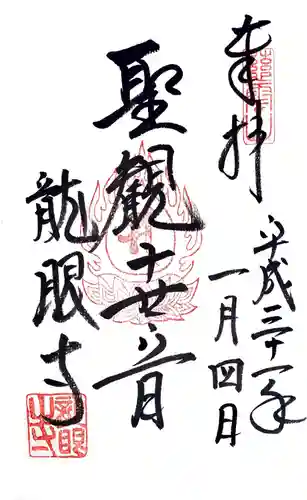 奉拝
平成三十一年
一月四日
聖観世音
龍眼寺